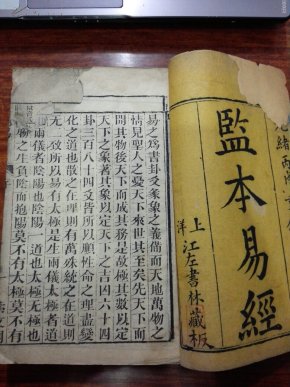 監本易經
上洋
江左書林藏板
易之爲書卦爻彖象之義備而天地萬物之
情見聖人之憂天下來世其至矣先天下而
開其物後天下而成其務是故極其數以定
天下之象著其象以定天下之吉凶六十四
卦三百八十四爻皆所以順性命之理盡變
化之道也散之在理則有萬殊統之在道則
无二致所以易有太極是生兩儀太極者道
兩儀者陰陽也陰陽一道也太極无極也
物之生負陰而抱陽莫不有太極莫不有